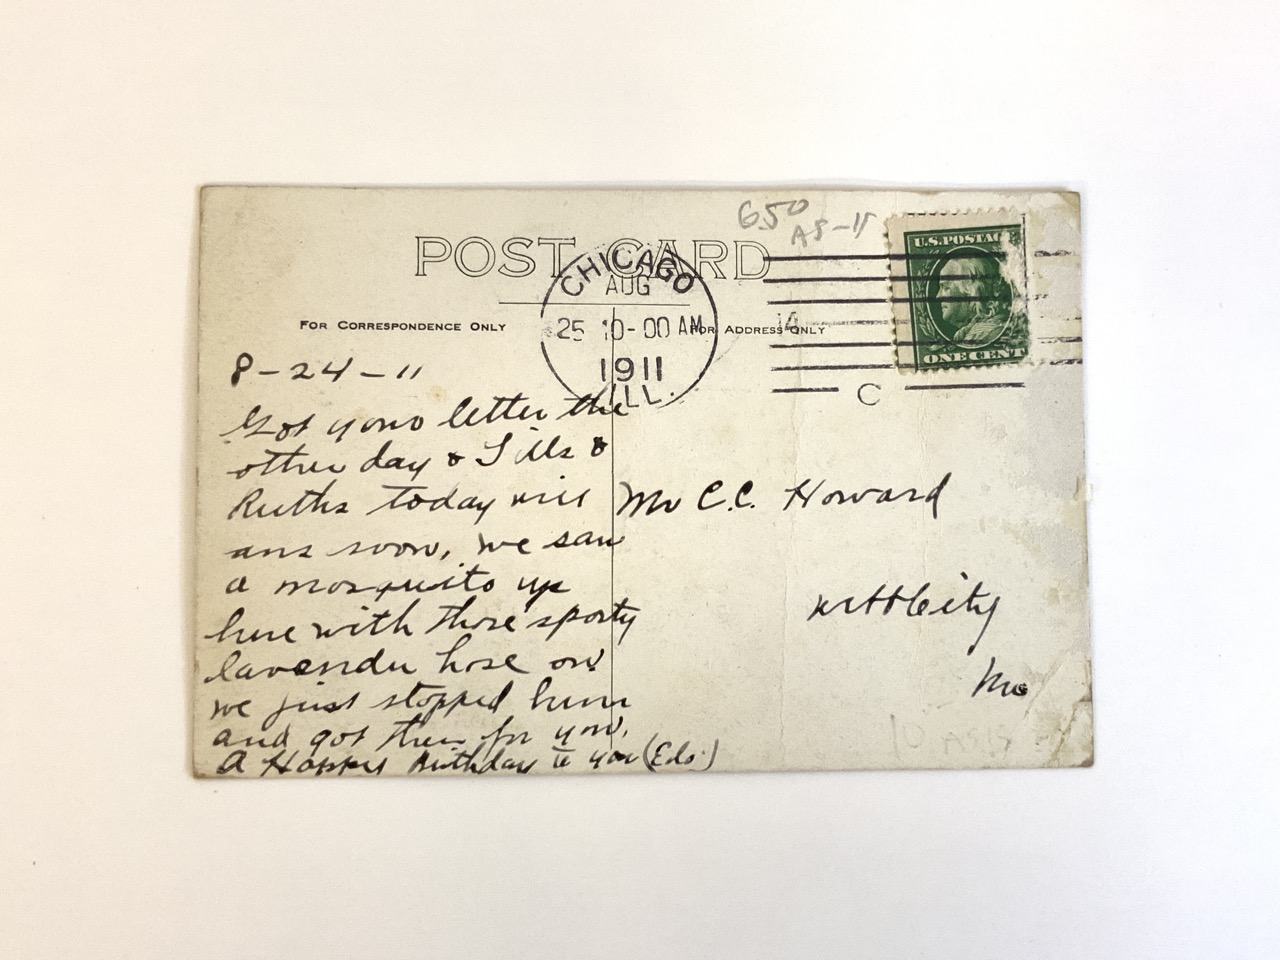 650
AS-11
U.S. POSTAGE
ONE CENT
POST CARD
CHICAGO
AUG
25 10-00 AM
1911
ILL.
C
FOR CORRESPONDENCE ONLY
FOR ADDRESS ONLY
8-24-11
Got your letter the
other day & Tills &
Ruths today will
ans soon, we saw
a mosquito up
here with those sporty
lavender hose on
we just stopped him
and got them for you.
A Happy Birthday to you (Eds.)
Mr C.C. Howard
City
Mo
10 AS IS